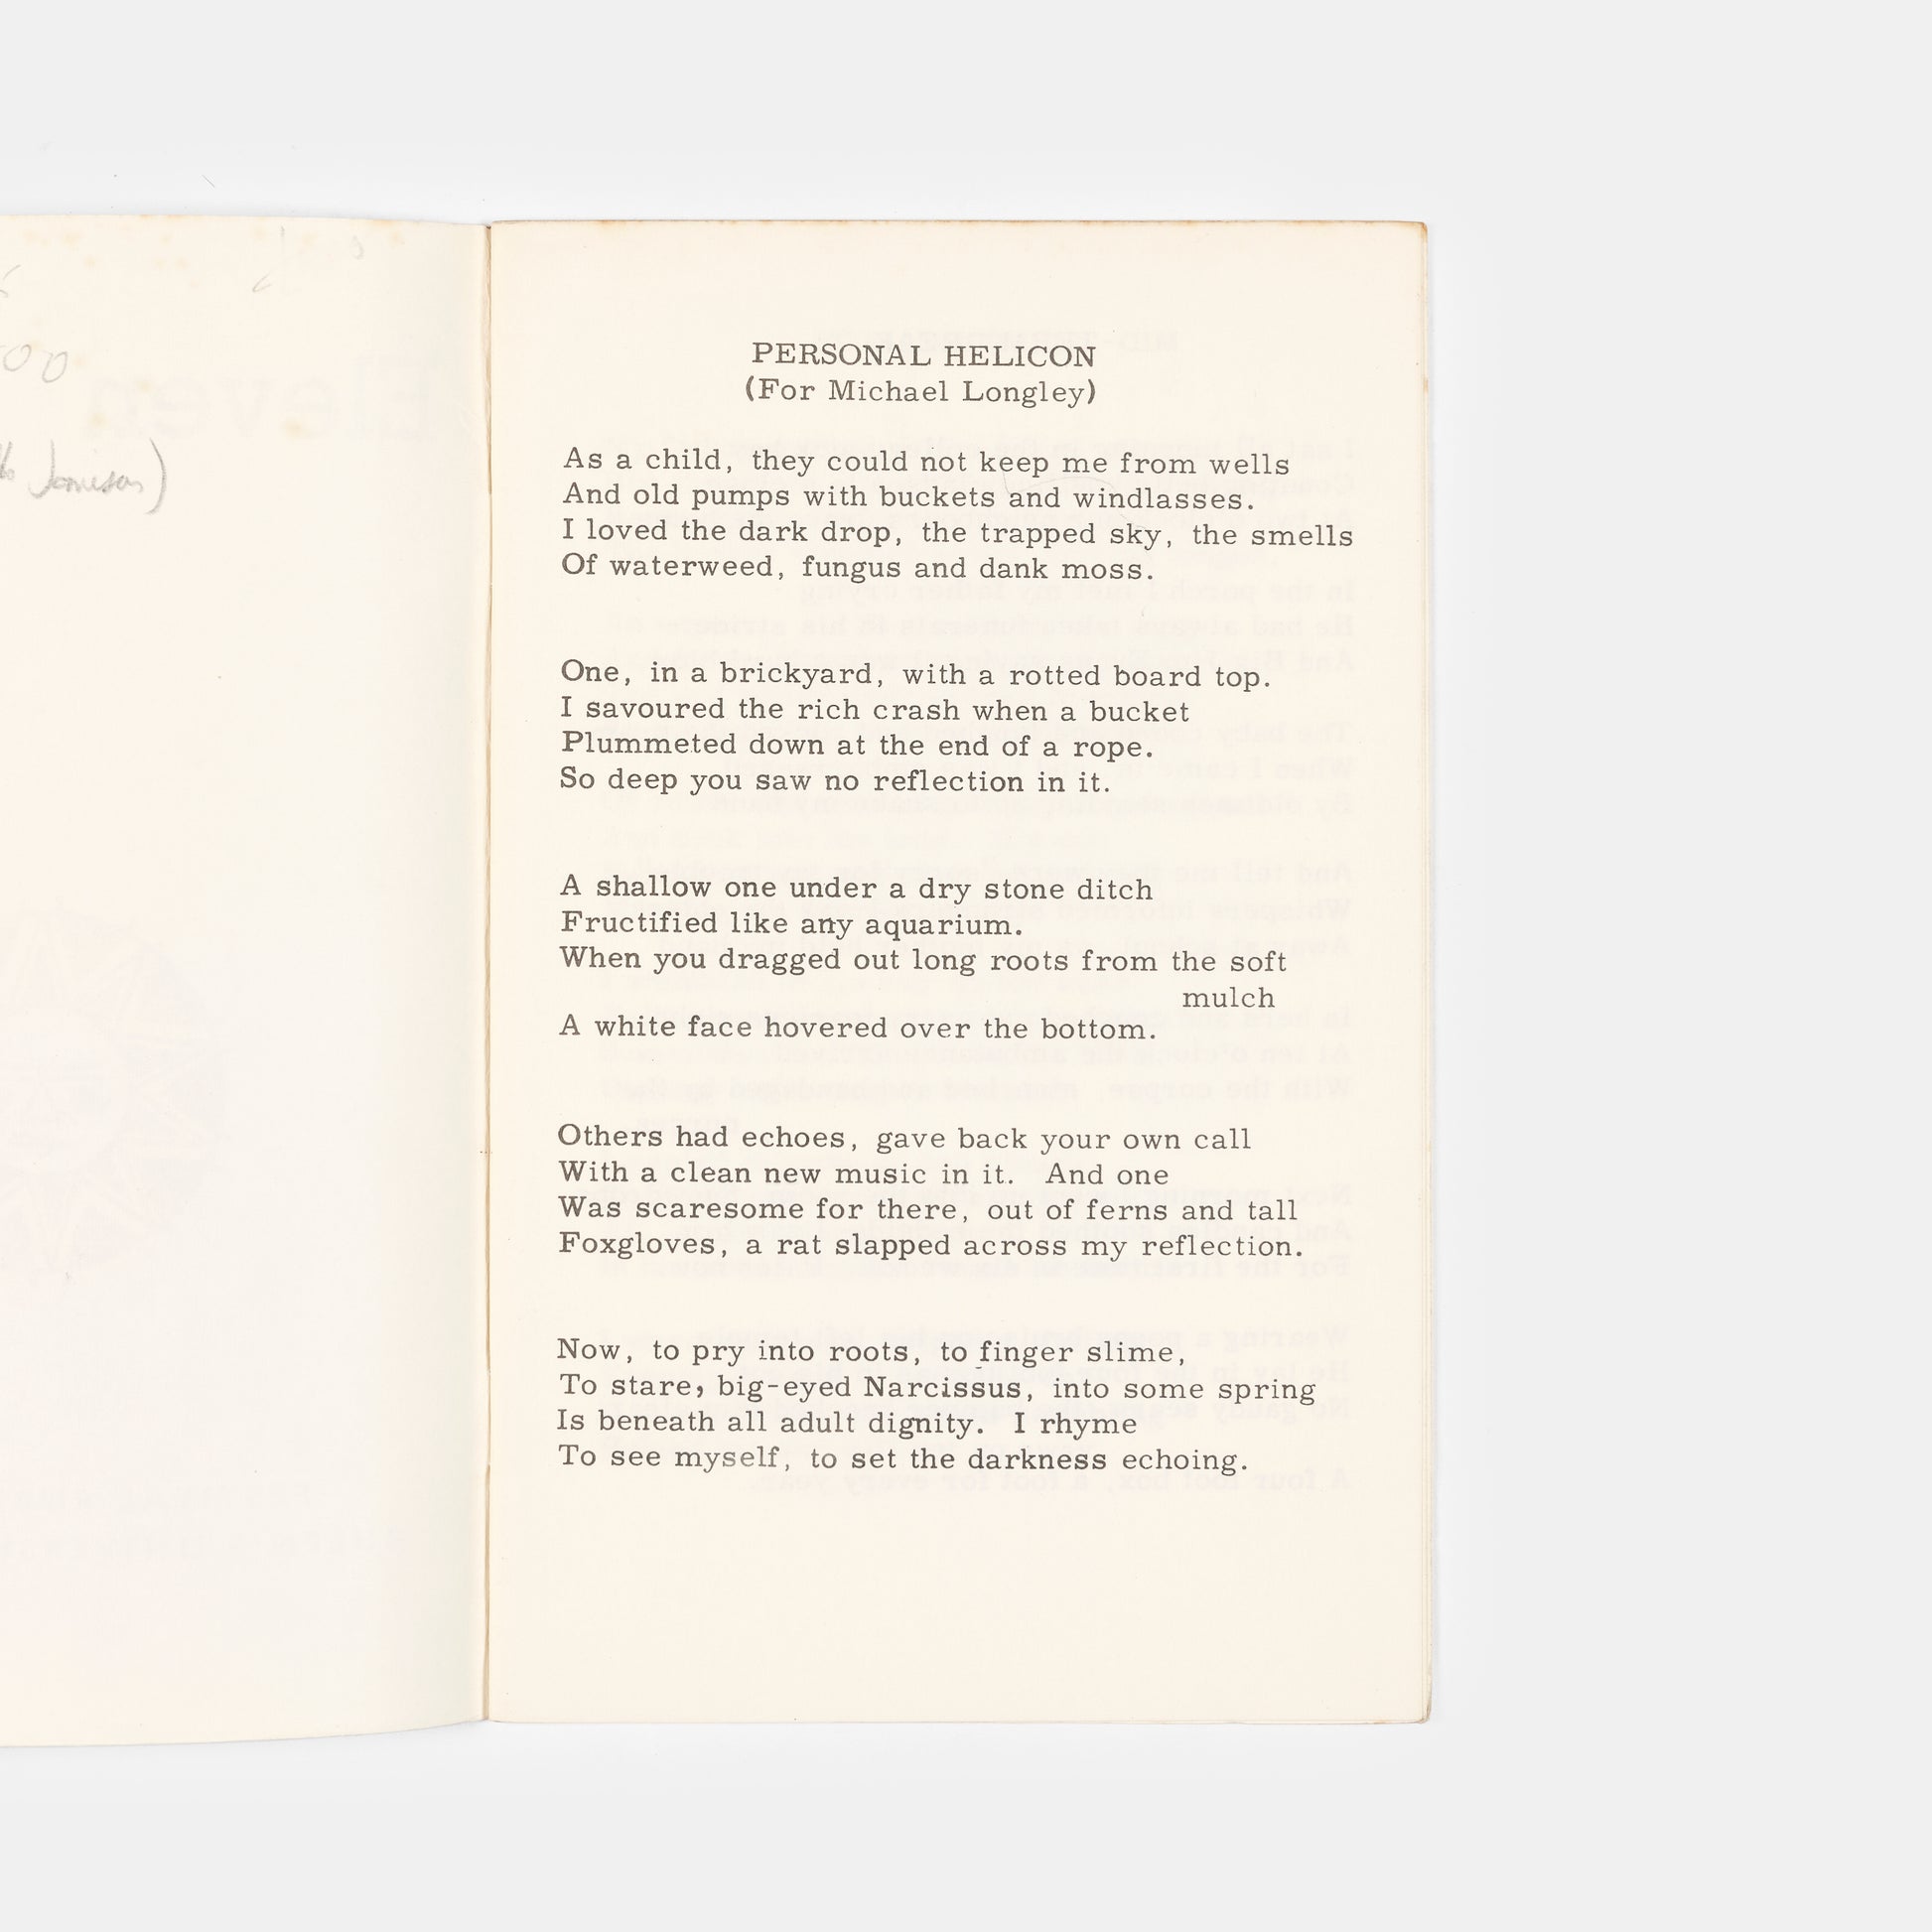 Jamison)
PERSONAL HELICON
(For Michael Longley)
As a child, they could not keep me from wells
And old pumps with buckets and windlasses.
I loved the dark drop, the trapped sky, the smells
Of waterweed, fungus and dank moss.
One, in a brickyard, with a rotted board top.
I savoured the rich crash when a bucket
Plummeted down at the end of a rope.
So deep you saw no reflection in it.
A shallow one under a dry stone ditch
Fructified like any aquarium.
When you dragged out long roots from the soft
mulch
A white face hovered over the bottom.
Others had echoes, gave back your own call
With a clean new music in it. And one
Was scaresome for there, out of ferns and tall
Foxgloves, a rat slapped across my reflection.
Now, to pry into roots, to finger slime,
To stare, big-eyed Narcissus, into some spring
Is beneath all adult dignity. I rhyme
To see myself, to set the darkness echoing.